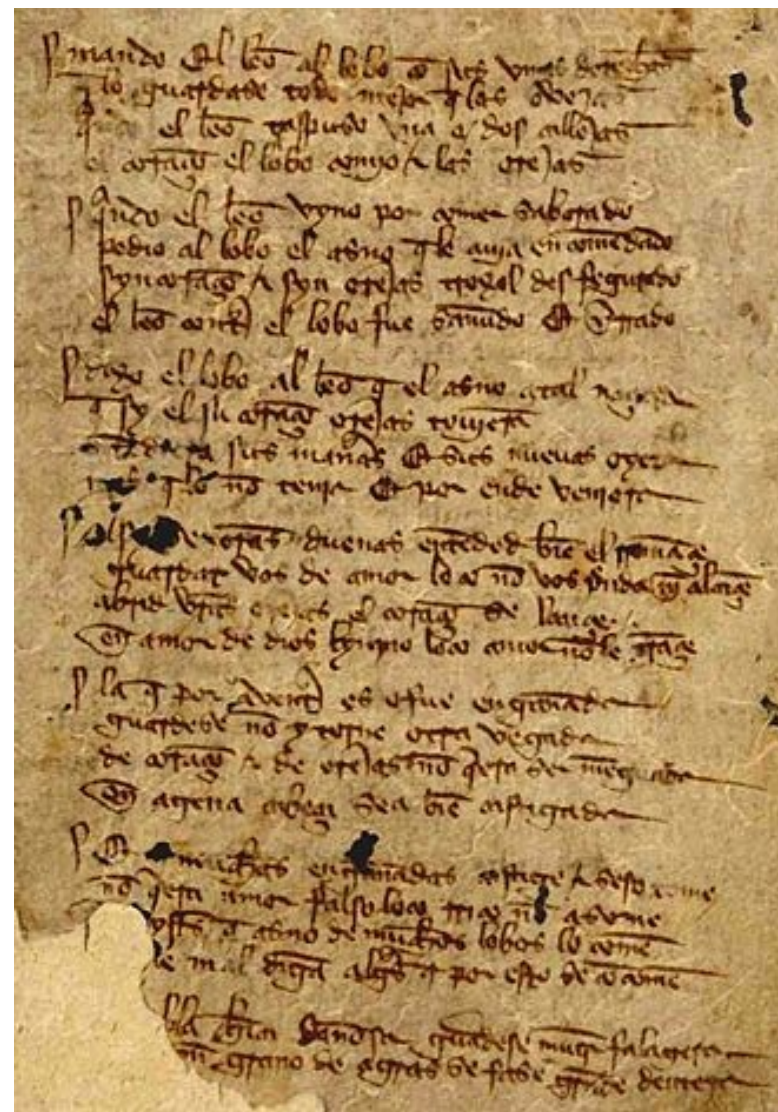 mando El leō al lobo cō sus vnas
q̄ lo guardase todo mejor q̄ las ovejas
el leō traspuso vna o dos callejas
el coraçō el lobo comyo & las orejas
q̄ndo el leō vyno por comer saborado
pedio al lobo el asno q̄ le avia encomēdado
syn coraçō & syn orejas troxol desfegurado
el leō contra el lobo fue sanudo Et yrado
dixo el lobo al leō q̄ el asno atal
q̄ sy el su coraçō orejas tovjera
sus manas Et sus nuevas oyera
q̄ lo nō tenja Et por ende venjera
duenas entēded biē el romāçe
guardat vos de amor loco nō vos p̄nda nj̄ alcāçe
abrid vr̄as orejas el coraçō se lançe
En amor de dios lynpio loco amor nō le
la q̄ por avent̄a es o fue engannada
guardese nō y torne otra vegada
de coraçō & de orejas nō q̄era ser mēguada
En agena cabeça sea biē castigada
Et muchas engannadas castigo & seso tome
nō q̄era amor falso loco riso nō asome
q̄ asno de muchos lobos lo comē
mal digā algūs q̄ por esto se
chica danosa guardese muger falagera
grano de agras se fase grāde dentera